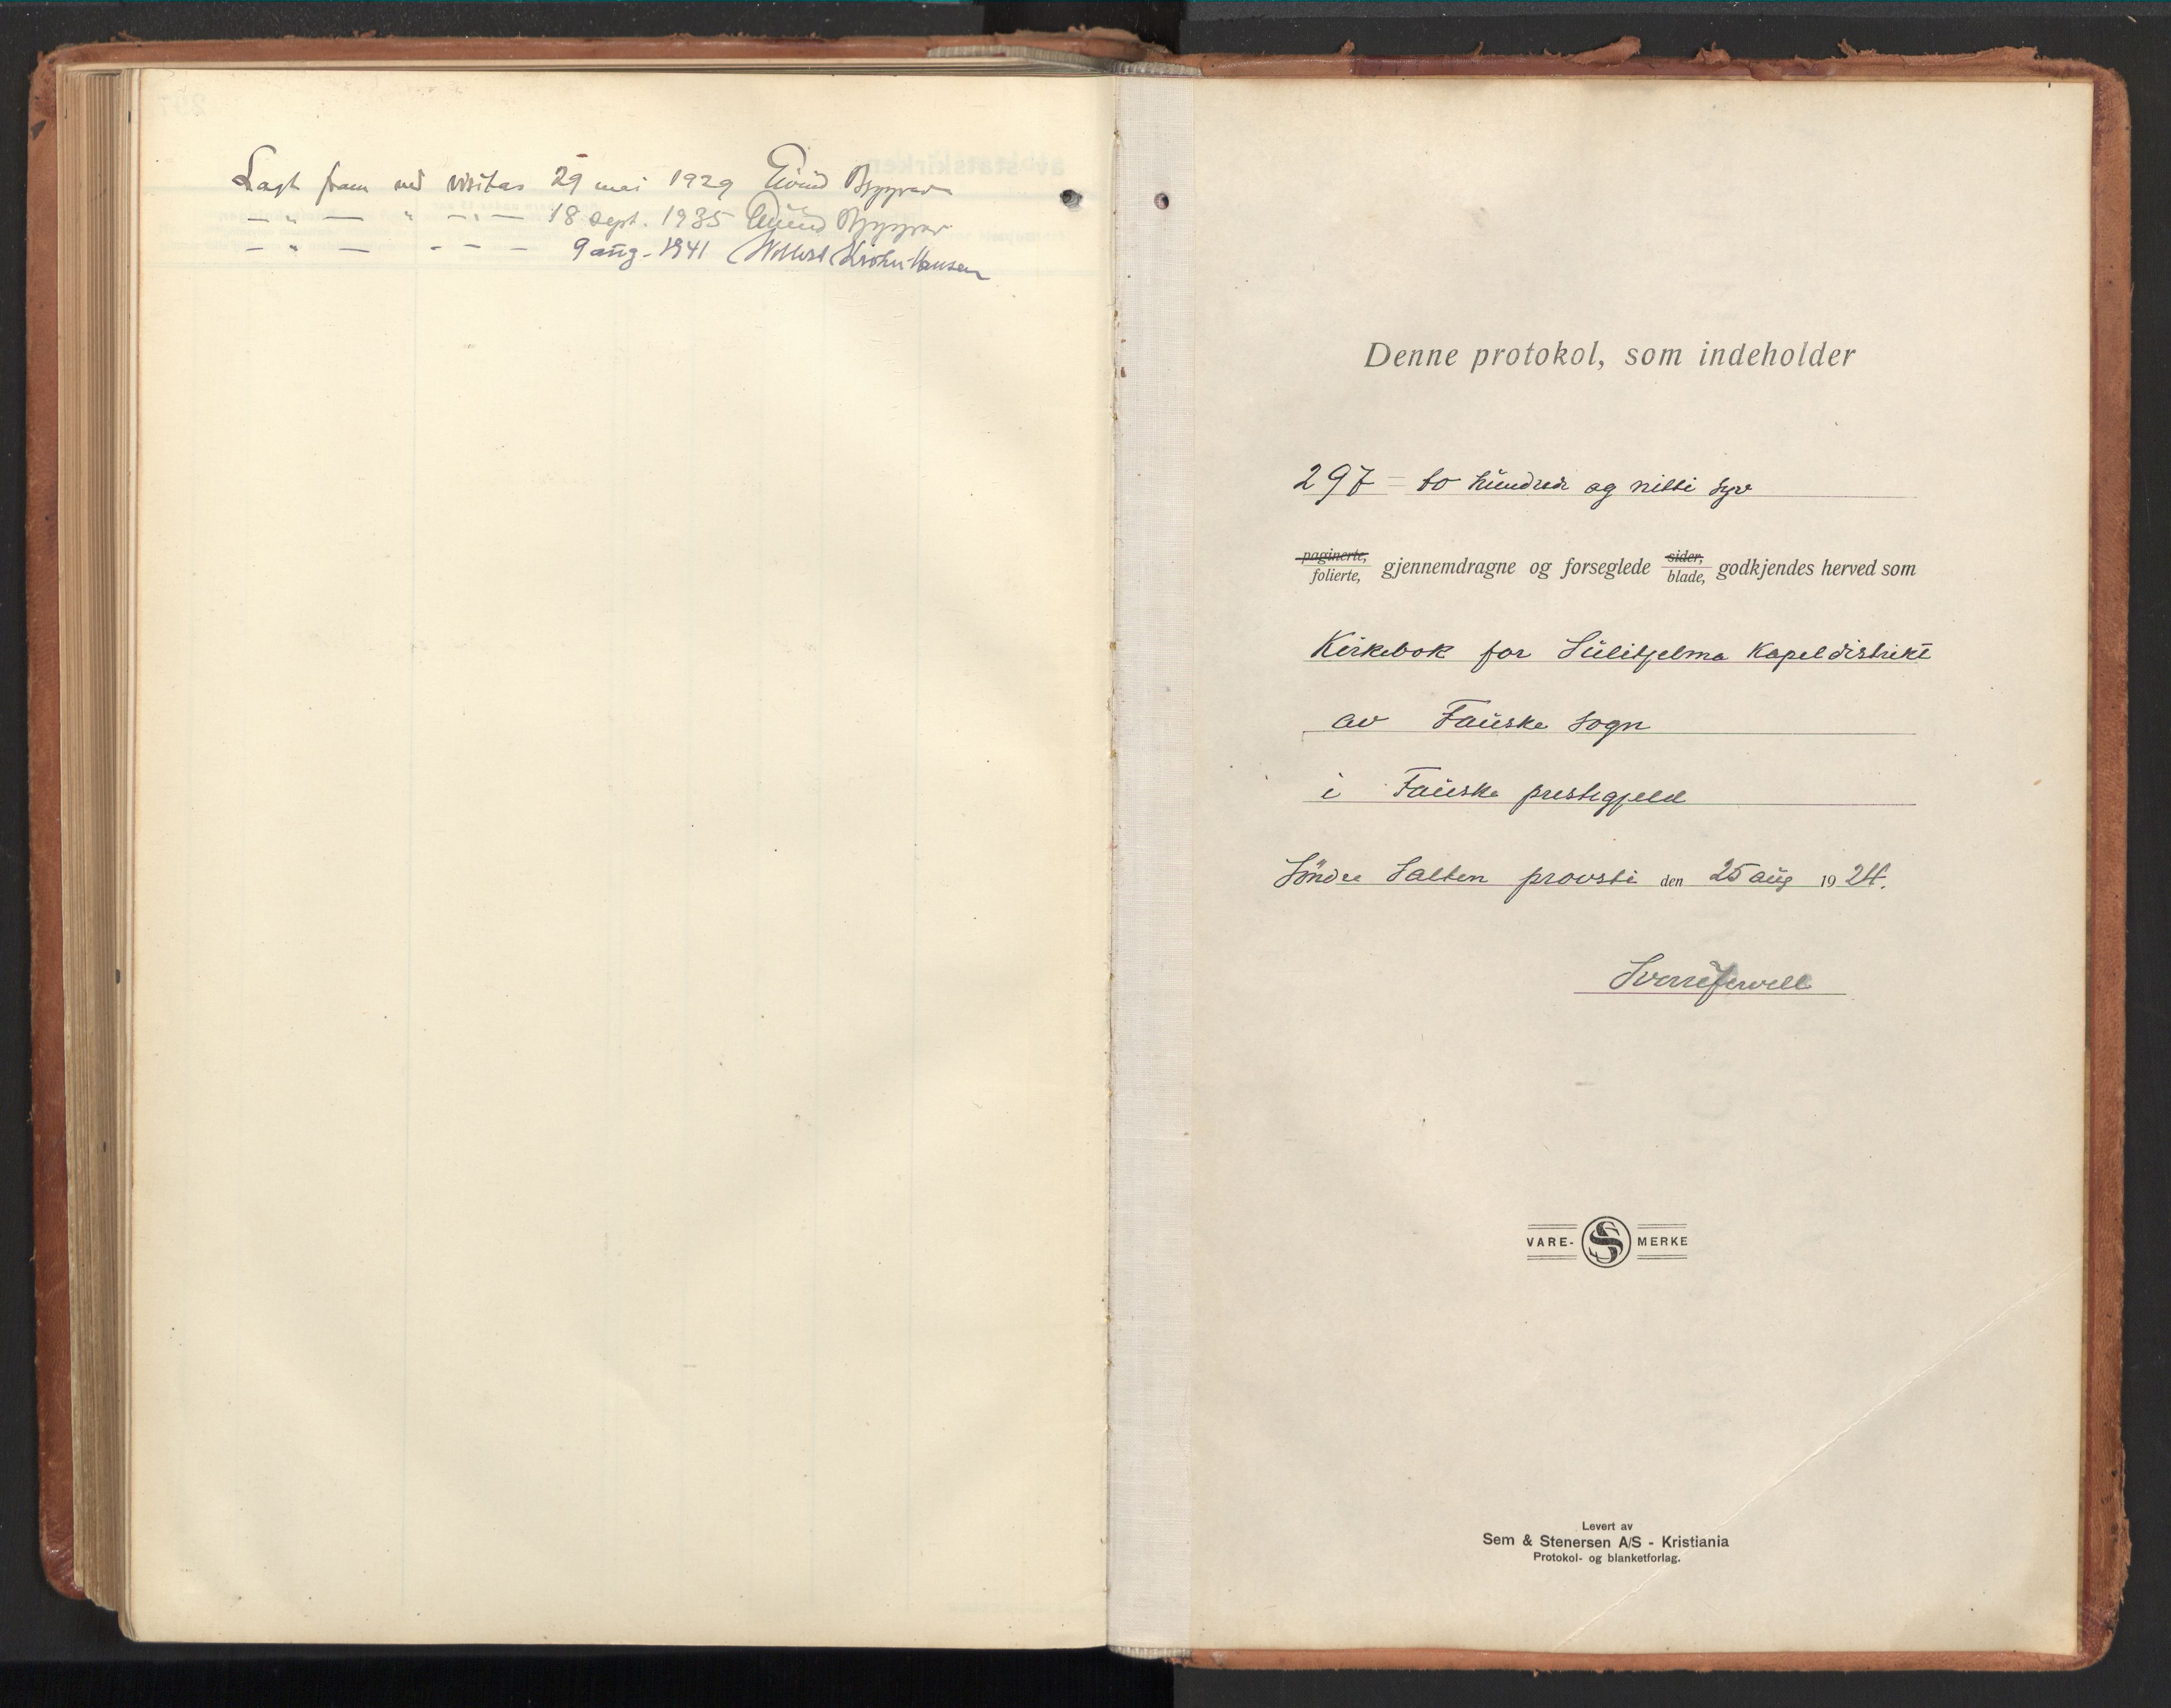 Lagt fram ved visitas 29 mai 1929 Eivind Berggrav
— " — " — " — 18 sept. 1935 Eivind Berggrav
— " — - — — 9 aug. 1941 Wollert Krohn-Hansen
Denne protokol, som indeholder
297 = to hundrede og nitti syv
paginerte, folierte, gjennemdragne og forseglede sider, blade, godkjendes herved som
Kirkebok for Sulitjelma Kapeldistrikt
av Fauske sogn
i Fauske prestegjeld
Söndre Salten provsti den 25 aug 1924.
VARE- S MERKE
Levert av
Sem & Stenersen A/S - Kristiania
Protokol- og blanketforlag.